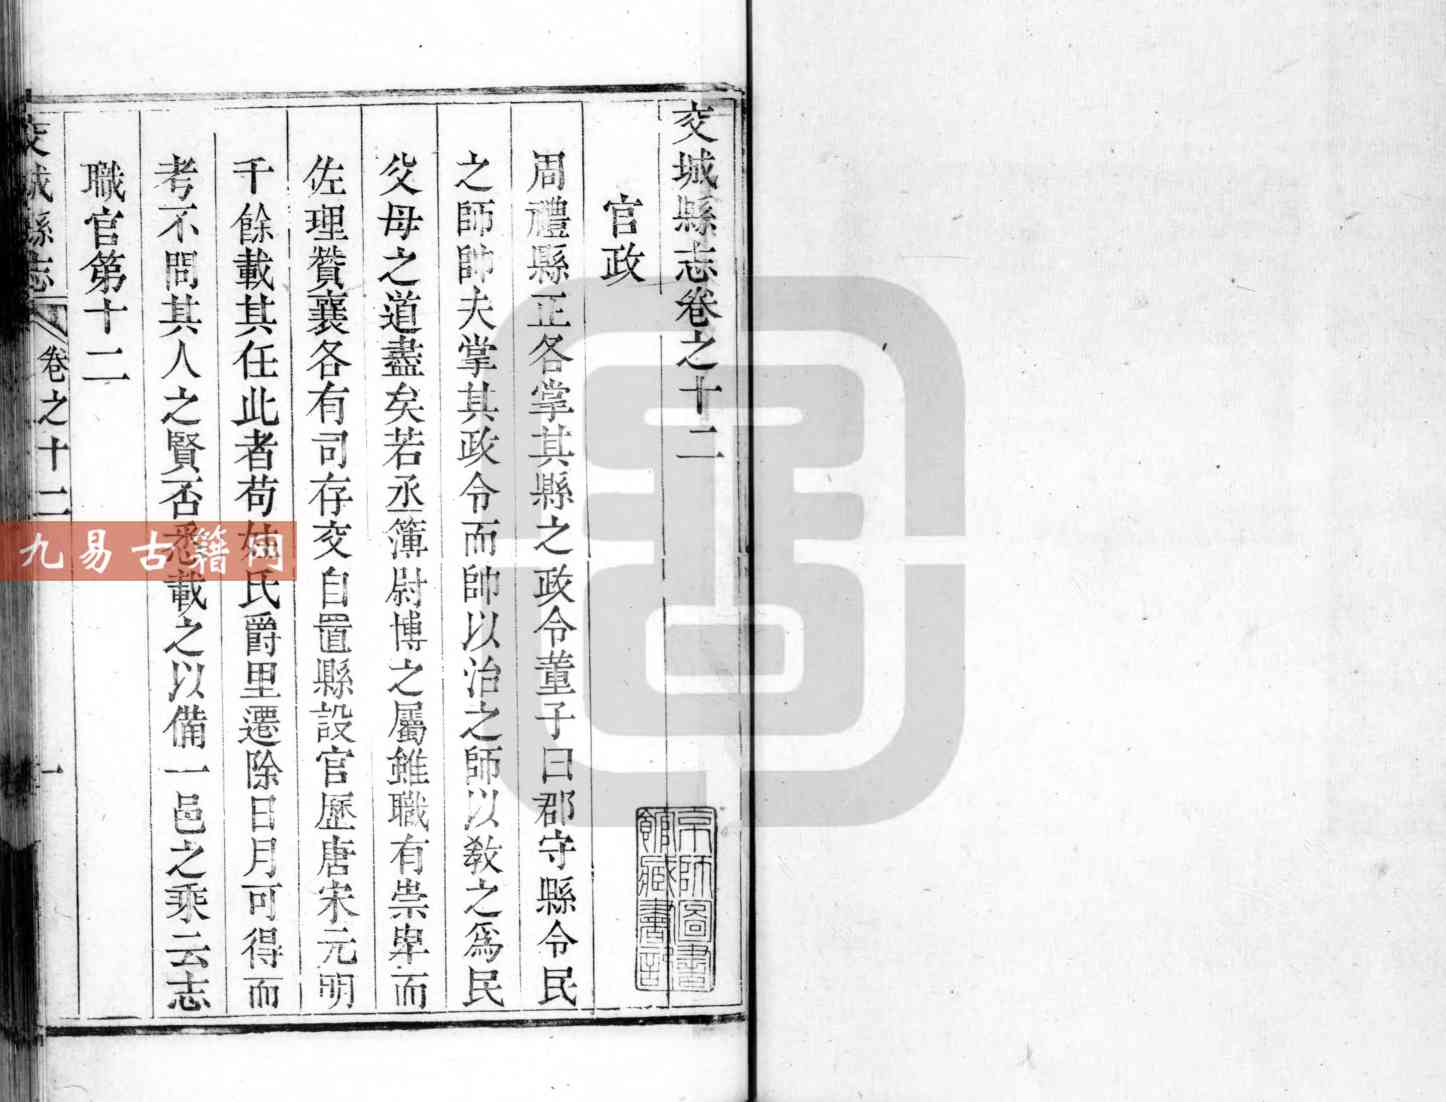 交城縣志卷之十二
官政
周禮縣正各掌其縣之政令董子曰郡守縣令民
之師帥夫掌其政令而帥以治之師以敎之爲民
父母之道盡矣若丞簿尉博之屬雖職有崇卑而
佐理贊襄各有司存交自置縣設官歷唐宋元明
千餘載其任此者苟姓氏爵里遷除日月可得而
考不問其人之賢否悉載之以備一邑之乘云志
職官第十二
交城縣志
卷之十二
一
京師圖書
館藏書記
九易古籍网